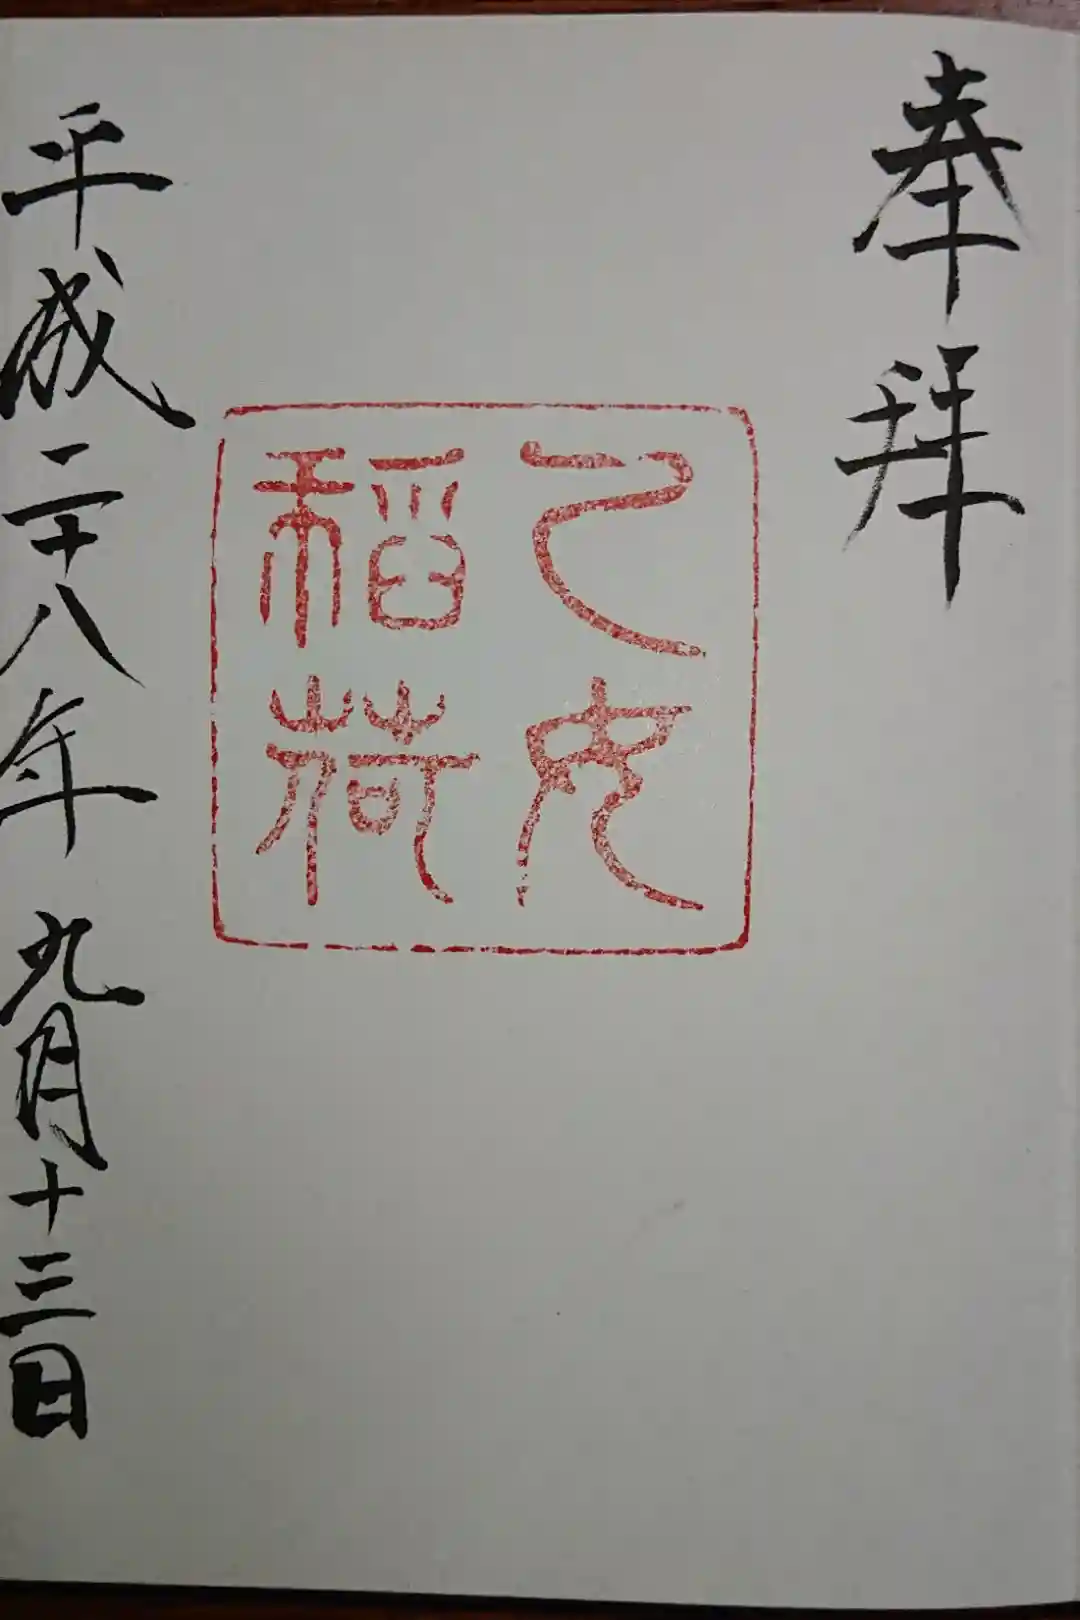 奉拝
乙女
稲荷
平成二十八年九月十三日